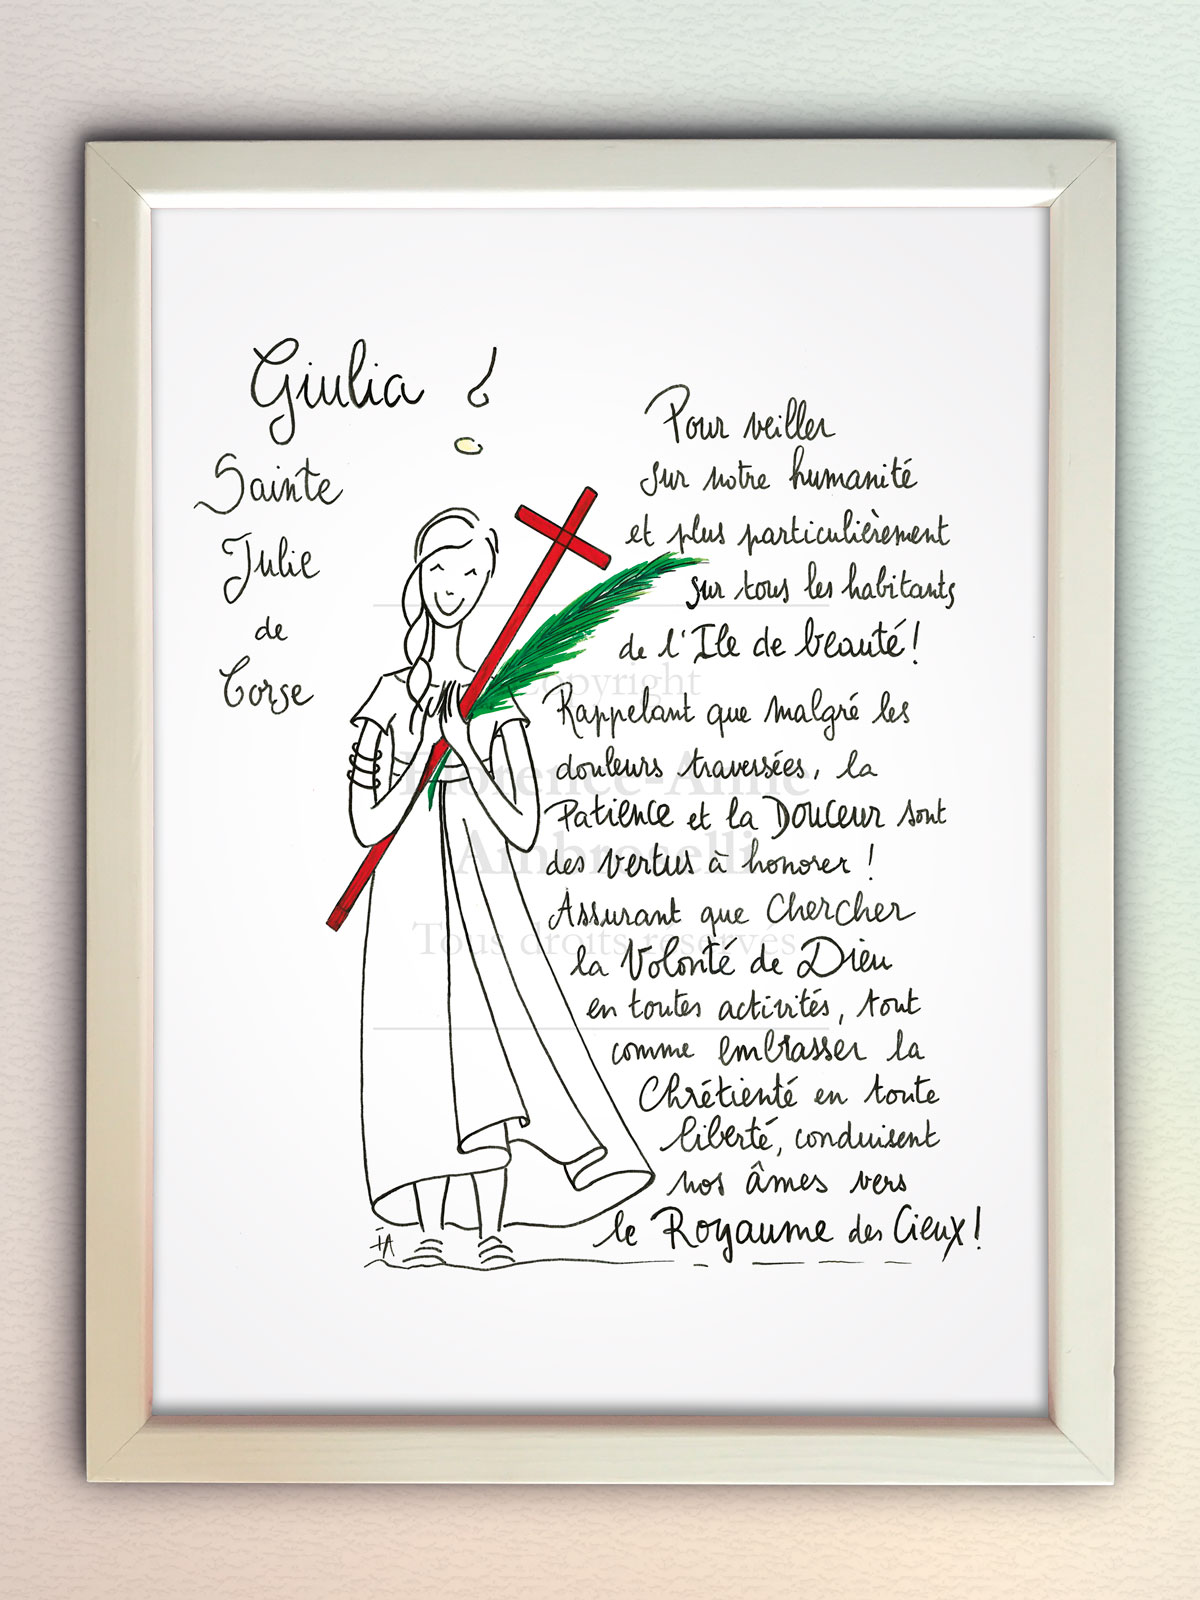 Giulia
Sainte
Julie
de
Corse
Pour veiller
sur notre humanité
et plus particulièrement
sur tous les habitants
de l'Ile de beauté !
Rappelant que malgré les
douleurs traversées, la
Patience et la Douceur sont
des vertus à honorer !
Assurant que Chercher
la Volonté de Dieu
en toutes activités, tout
comme embrasser la
Chrétienté en toute
liberté, conduisent
nos âmes vers
le Royaume des Cieux !
FA
Copyright
Florence-Anne
Ambroselli
Tous droits réservés